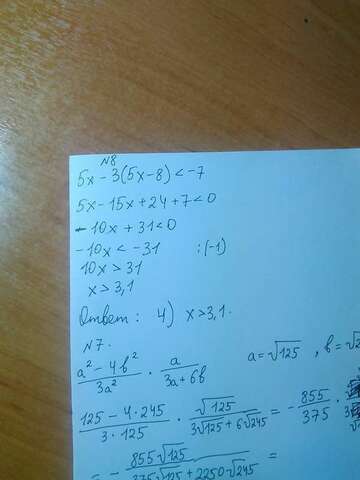 N8
5x - 3(5x-8) < -7
5x - 15x + 24 + 7 < 0
-10x + 31 < 0
-10x < -31 :(-1)
10x > 31
x > 3,1
Ответ: 4) x > 3,1.
N7.
(a² - 4b²)/(3a²) · a/(3a+6b) a = √125 , b = √2
(125 - 4·245)/(3·125) · √125/(3√125 + 6√245) = - 855/375 ·
= - 855√125/(375√125 + 2250√245) =